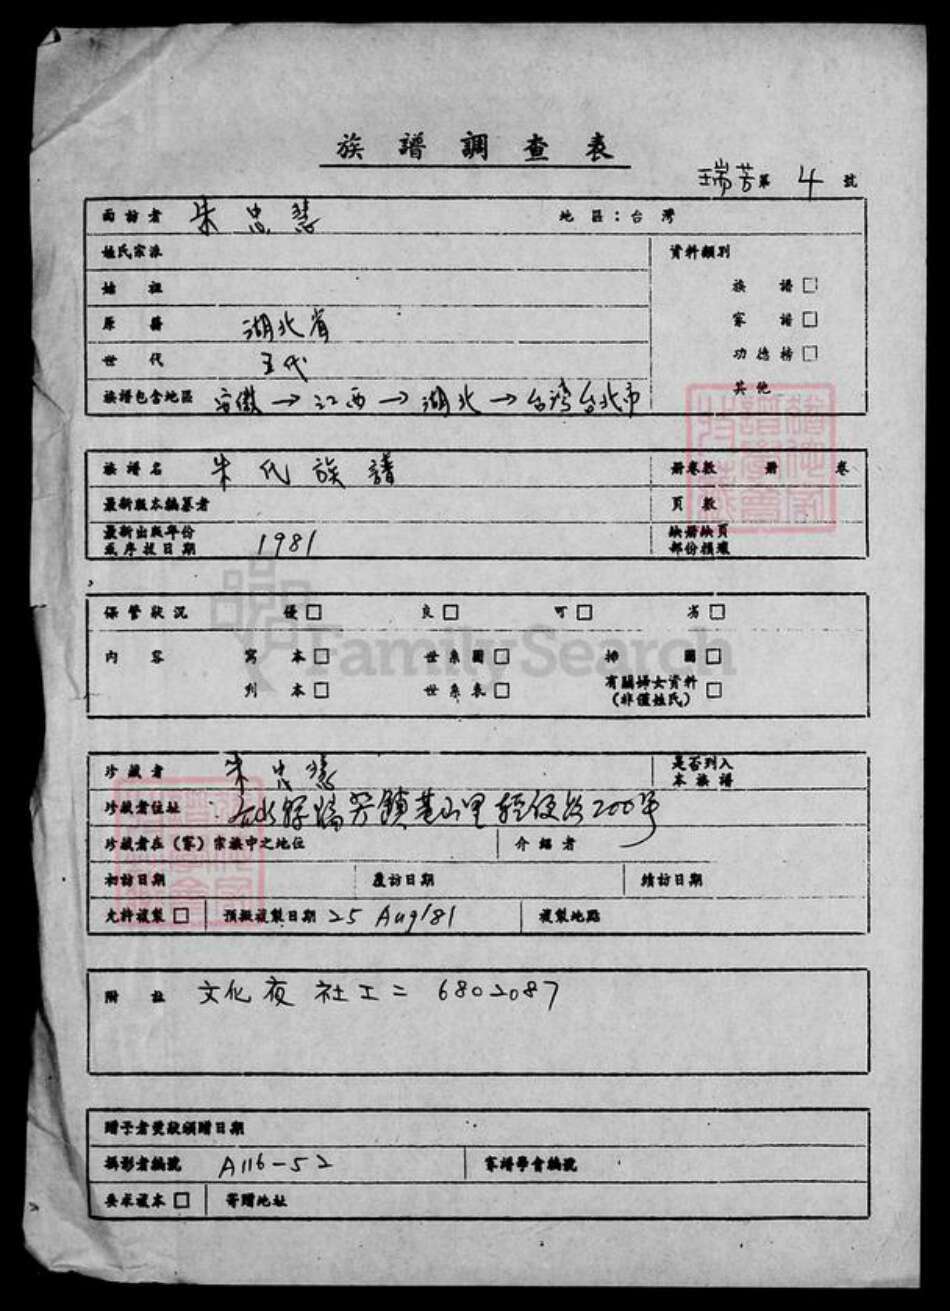 族譜調查表
瑞芳第 4 號
面訪者 朱忠慧 地區：台灣
姓氏宗派 資料類別
始祖 族譜□
原籍 湖北省 家譜□
世代 五代 功德榜□
族譜包含地區 安徽→江西→湖北→台灣台北市 其他
族譜名 朱氏族譜 冊卷數 冊 卷
最新版本編纂者 頁數
最新出版年份 缺冊缺頁
或序拔日期 1981 部份損壞
保管狀況 優□ 良□ 可□ 劣□
內容 寫本□ 世系圖□ 插圖□
刋本□ 世系表□ 有關婦女資料□
(非僅姓氏)
珍藏者 朱忠慧 是否列入
本族譜
珍藏者住址 瑞芳鎮 里 路200號
珍藏者在（客）宗族中之地位 介紹者
初訪日期 覆訪日期 續訪日期
允許複製□ 預擬複製日期 25 Aug/81 複製地點
附註 文化夜社工二 6802087
贈予者受款領贈日期
攝影者編號 A116-52 家譜學會編號
要求複本□ 寄贈地址
FamilySearch